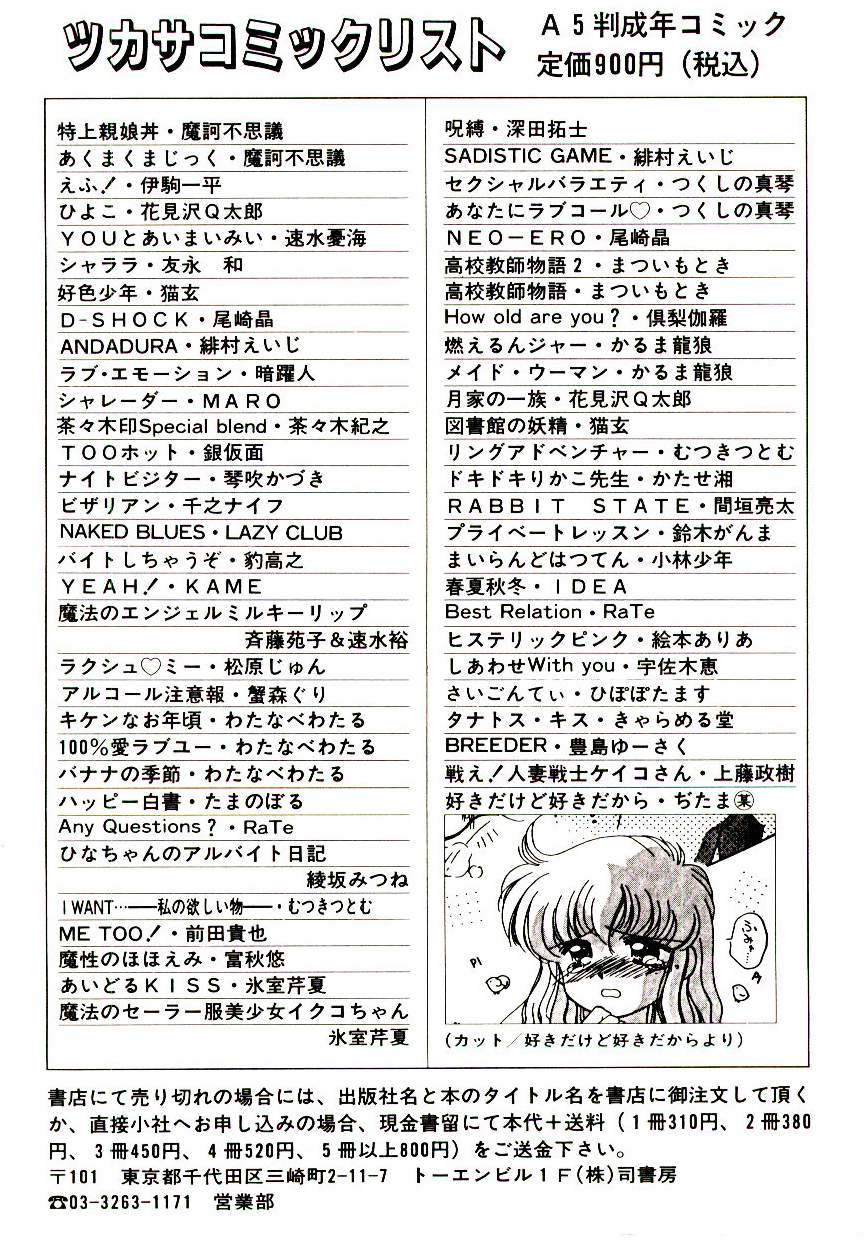 ツカサコミックリスト
A5判成年コミック
定価900円（税込）
特上親娘丼・魔訶不思議
あくまくまじっく・魔訶不思議
えふ！・伊駒一平
ひよこ・花見沢Q太郎
YOUとあいまいみい・速水憂海
シャララ・友永　和
好色少年・猫玄
D-SHOCK・尾崎晶
ANDADURA・緋村えいじ
ラブ・エモーション・暗躍人
シャレーダー・MARO
茶々木印Special blend・茶々木紀之
TOOホット・銀仮面
ナイトビジター・琴吹かづき
ビザリアン・千之ナイフ
NAKED BLUES・LAZY CLUB
バイトしちゃうぞ・豹高之
YEAH！・KAME
魔法のエンジェルミルキーリップ
斉藤苑子＆速水裕
ラクシュ♡ミー・松原じゅん
アルコール注意報・蟹森ぐり
キケンなお年頃・わたなべわたる
100％愛ラブユー・わたなべわたる
バナナの季節・わたなべわたる
ハッピー白書・たまのぼる
Any Questions？・RaTe
ひなちゃんのアルバイト日記
綾坂みつね
I WANT…──私の欲しい物──・むつきつとむ
ME TOO！・前田貴也
魔性のほほえみ・富秋悠
あいどるKISS・氷室芹夏
魔法のセーラー服美少女イクコちゃん
氷室芹夏
呪縛・深田拓士
SADISTIC GAME・緋村えいじ
セクシャルバラエティ・つくしの真琴
あなたにラブコール♡・つくしの真琴
NEO－ERO・尾崎晶
高校教師物語2・まついもとき
高校教師物語・まついもとき
How old are you？・倶梨伽羅
燃えるんジャー・かるま龍狼
メイド・ウーマン・かるま龍狼
月家の一族・花見沢Q太郎
図書館の妖精・猫玄
リングアドベンチャー・むつきつとむ
ドキドキりかこ先生・かたせ湘
RABBIT　STATE・間垣亮太
プライベートレッスン・鈴木がんま
まいらんどはつてん・小林少年
春夏秋冬・IDEA
Best Relation・RaTe
ヒステリックピンク・絵本ありあ
しあわせWith you・宇佐木恵
さいごんてぃ・ひぽぽたます
タナトス・キス・きゃらめる堂
BREEDER・豊島ゆーさく
戦え！人妻戦士ケイコさん・上藤政樹
好きだけど好きだから・ぢたま㊑
ふみゃ…
(カット／好きだけど好きだからより)
書店にて売り切れの場合には、出版社名と本のタイトル名を書店に御注文して頂く
か、直接小社へお申し込みの場合、現金書留にて本代＋送料（1冊310円、2冊380
円、3冊450円、4冊520円、5冊以上800円）をご送金下さい。
〒101　東京都千代田区三崎町2-11-7　トーエンビル1F(株)司書房
☎03-3263-1171　営業部